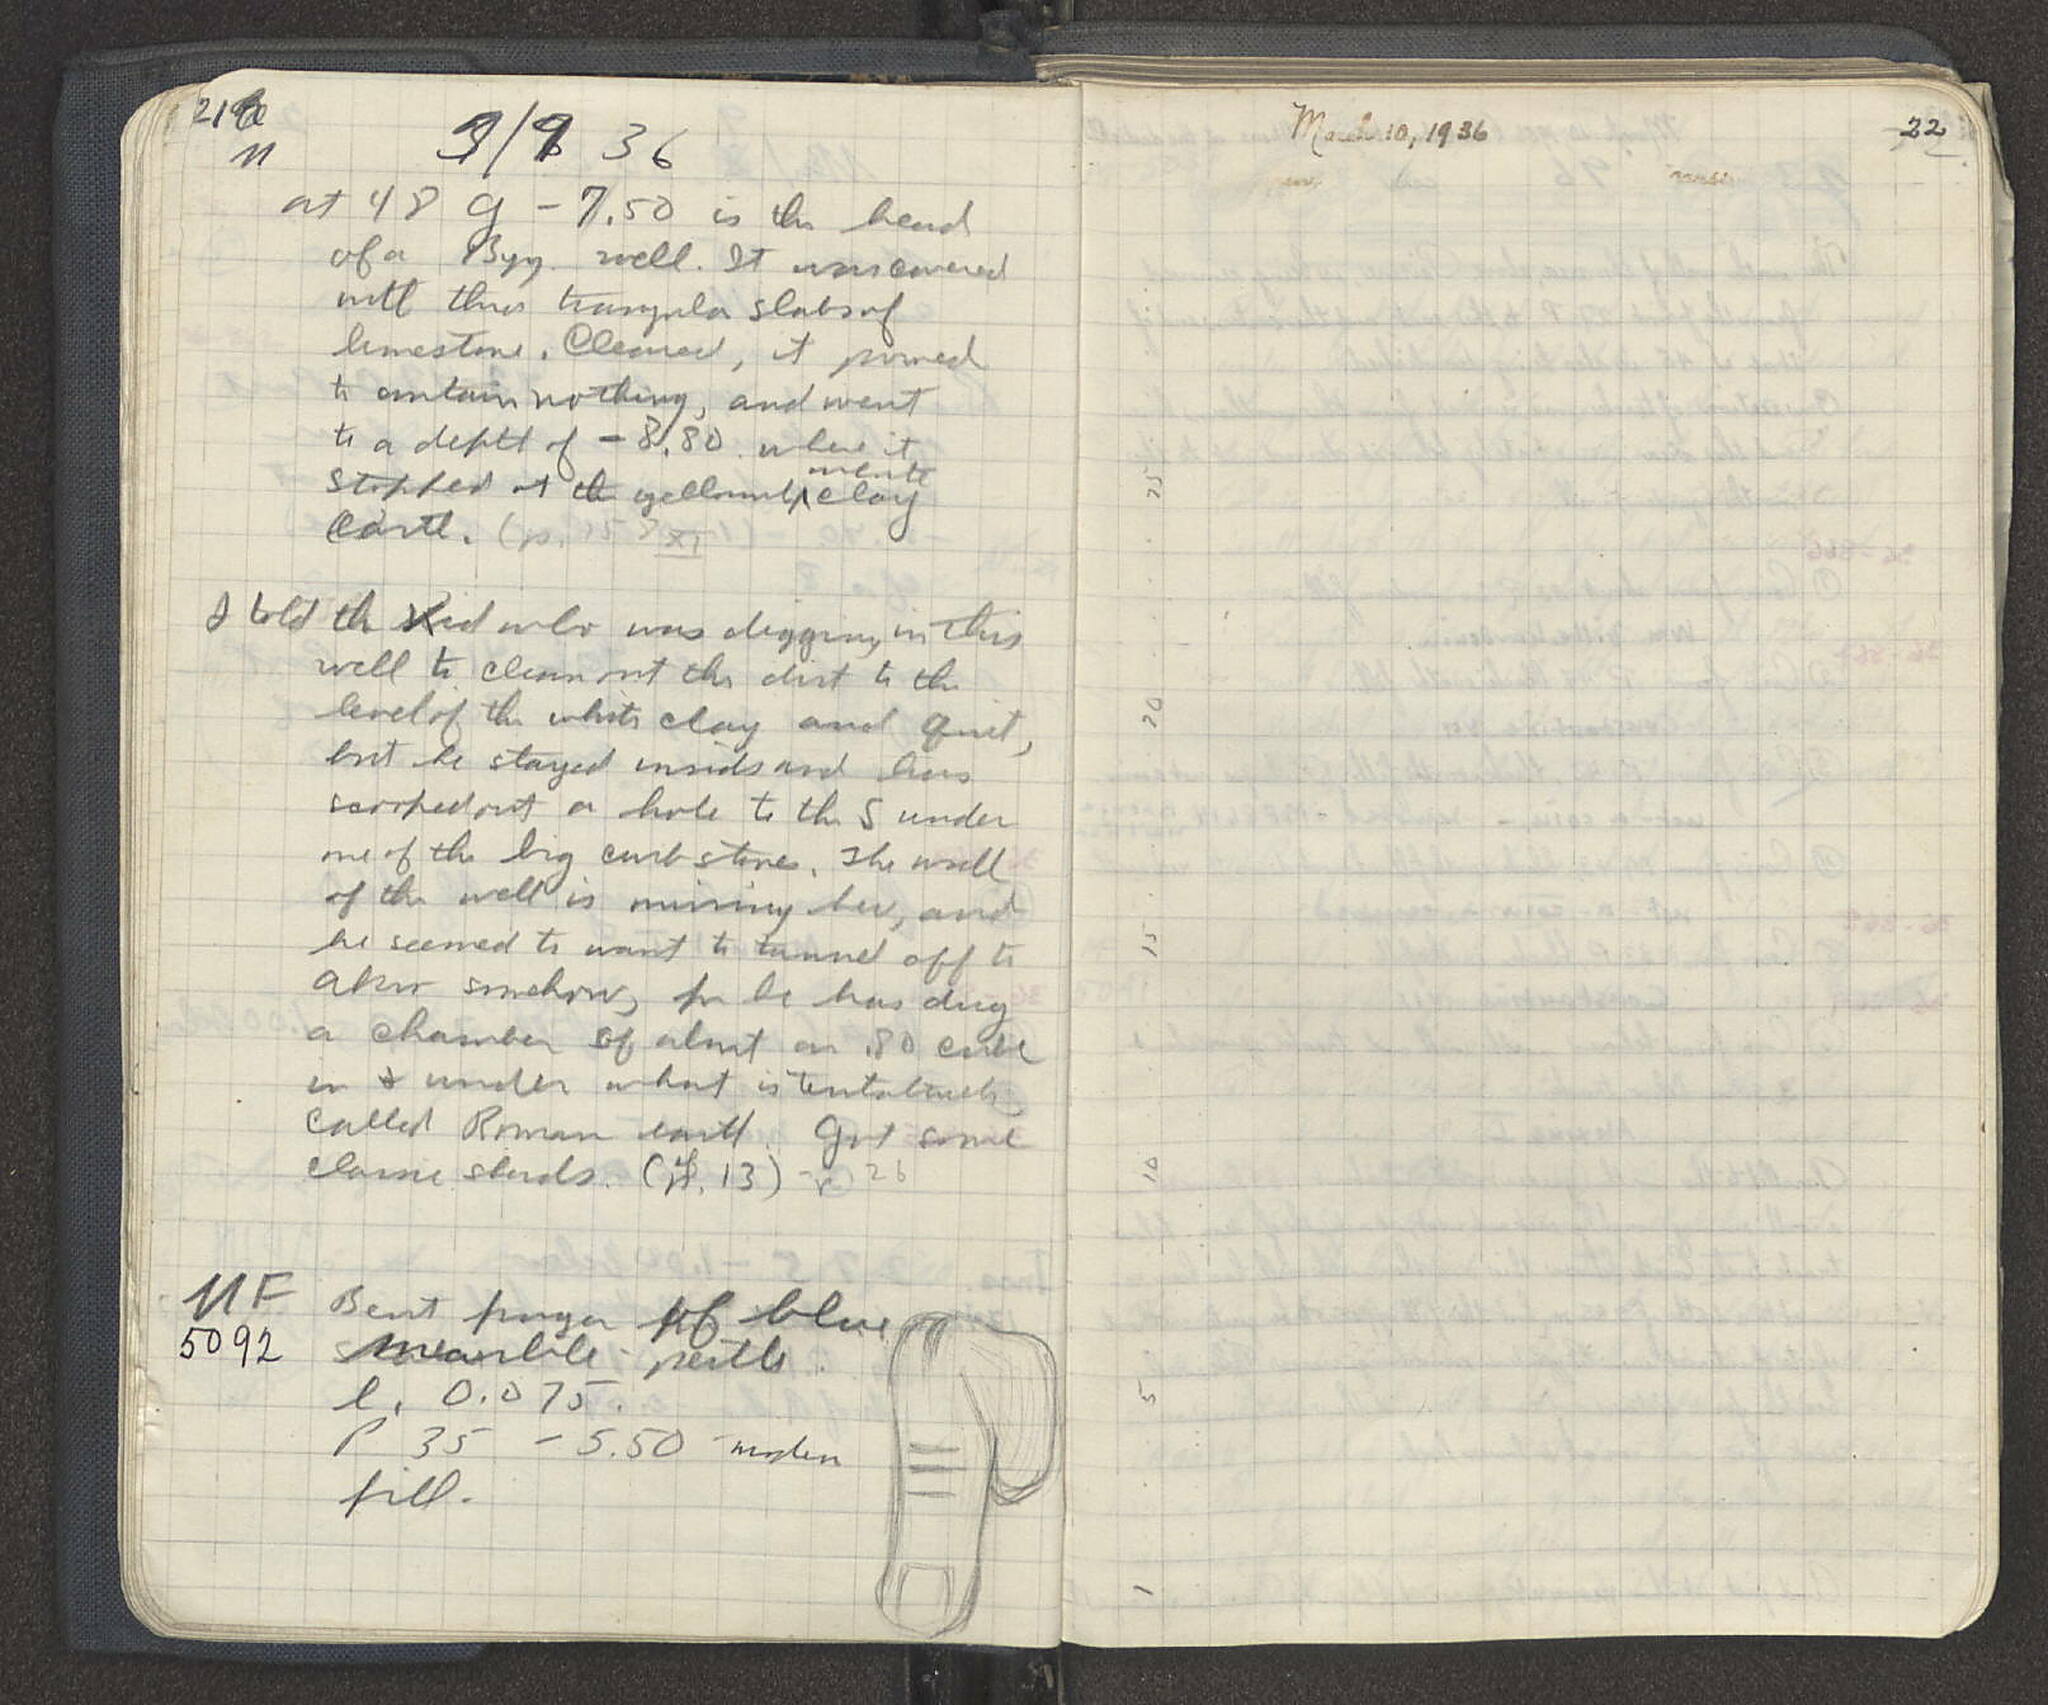 3/9 36
at 48 G - 7.50 is the head
of a Byz. well. It was covered
with three triangular slabs of
limestone. Cleaned, it proved
to contain nothing, and went
to a depth of - 8.80 where it
stopped at the yellowish white clay
earth. (p. 158 XI)
I told the kid who was digging in this
well to clean out the dirt to the
level of the white clay and quit,
but he stayed inside and has
scooped out a hole to the S under
one of the big curb stones. The wall
of the well is missing here, and
he seemed to want to tunnel off to
somehow, for he has dug
a chamber of about an .80 cube
in & under what is tentatively
called Roman earth. Got some
classic sherds. (p. 13) 26
MF
5092
Bent finger of blue
marble pestle.
l. 0.075.
P 35 - 5.50 modern
fill.
March 10, 1936
22
25
20
15
10
5
1